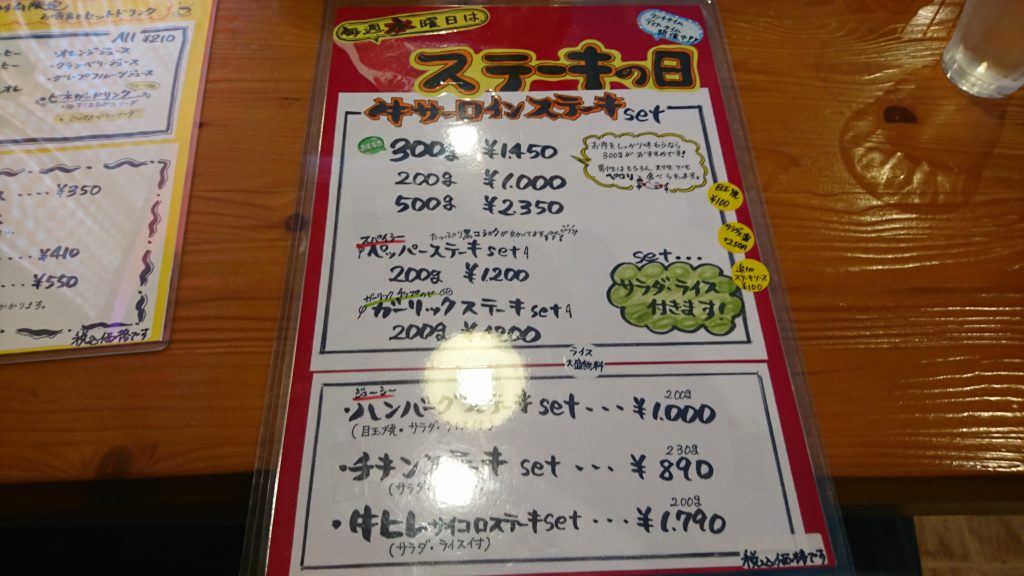 お食事とセットドリンク
All ¥210
・オレンジジュース
・クランベリージュース
・グレープフルーツジュース
¥350
¥410
¥550
税込価格です
毎週水曜日は
ランチタイム
ディナータイム
開催中!!
ステーキの日
牛サーロインステーキset
おすすめ
300g ¥1.450
200g ¥1.000
500g ¥2.350
お肉をしっかり味わうなら
300gがおすすめです!
男性はもちろん、女性でも
ペロリと食べられます。
目玉焼
¥100
サラダ
+250円
追加
ステーキソース
¥100
スパイシー
たっぷり黒コショウが
ペッパーステーキset
200g ¥1.200
ガーリックチップのせ
ガーリックステーキset
200g ¥1.200
set...
サラダ・ライス
付きます!
ライス
大盛無料
ジューシー
・ハンバーグステーキset... 200g ¥1.000
(目玉焼・サラダ・ライス付)
・チキンステーキ set ... 230g ¥890
(サラダ・ライス付)
・牛ヒレサイコロステーキset ... 200g ¥1.790
(サラダ・ライス付)
税込価格です